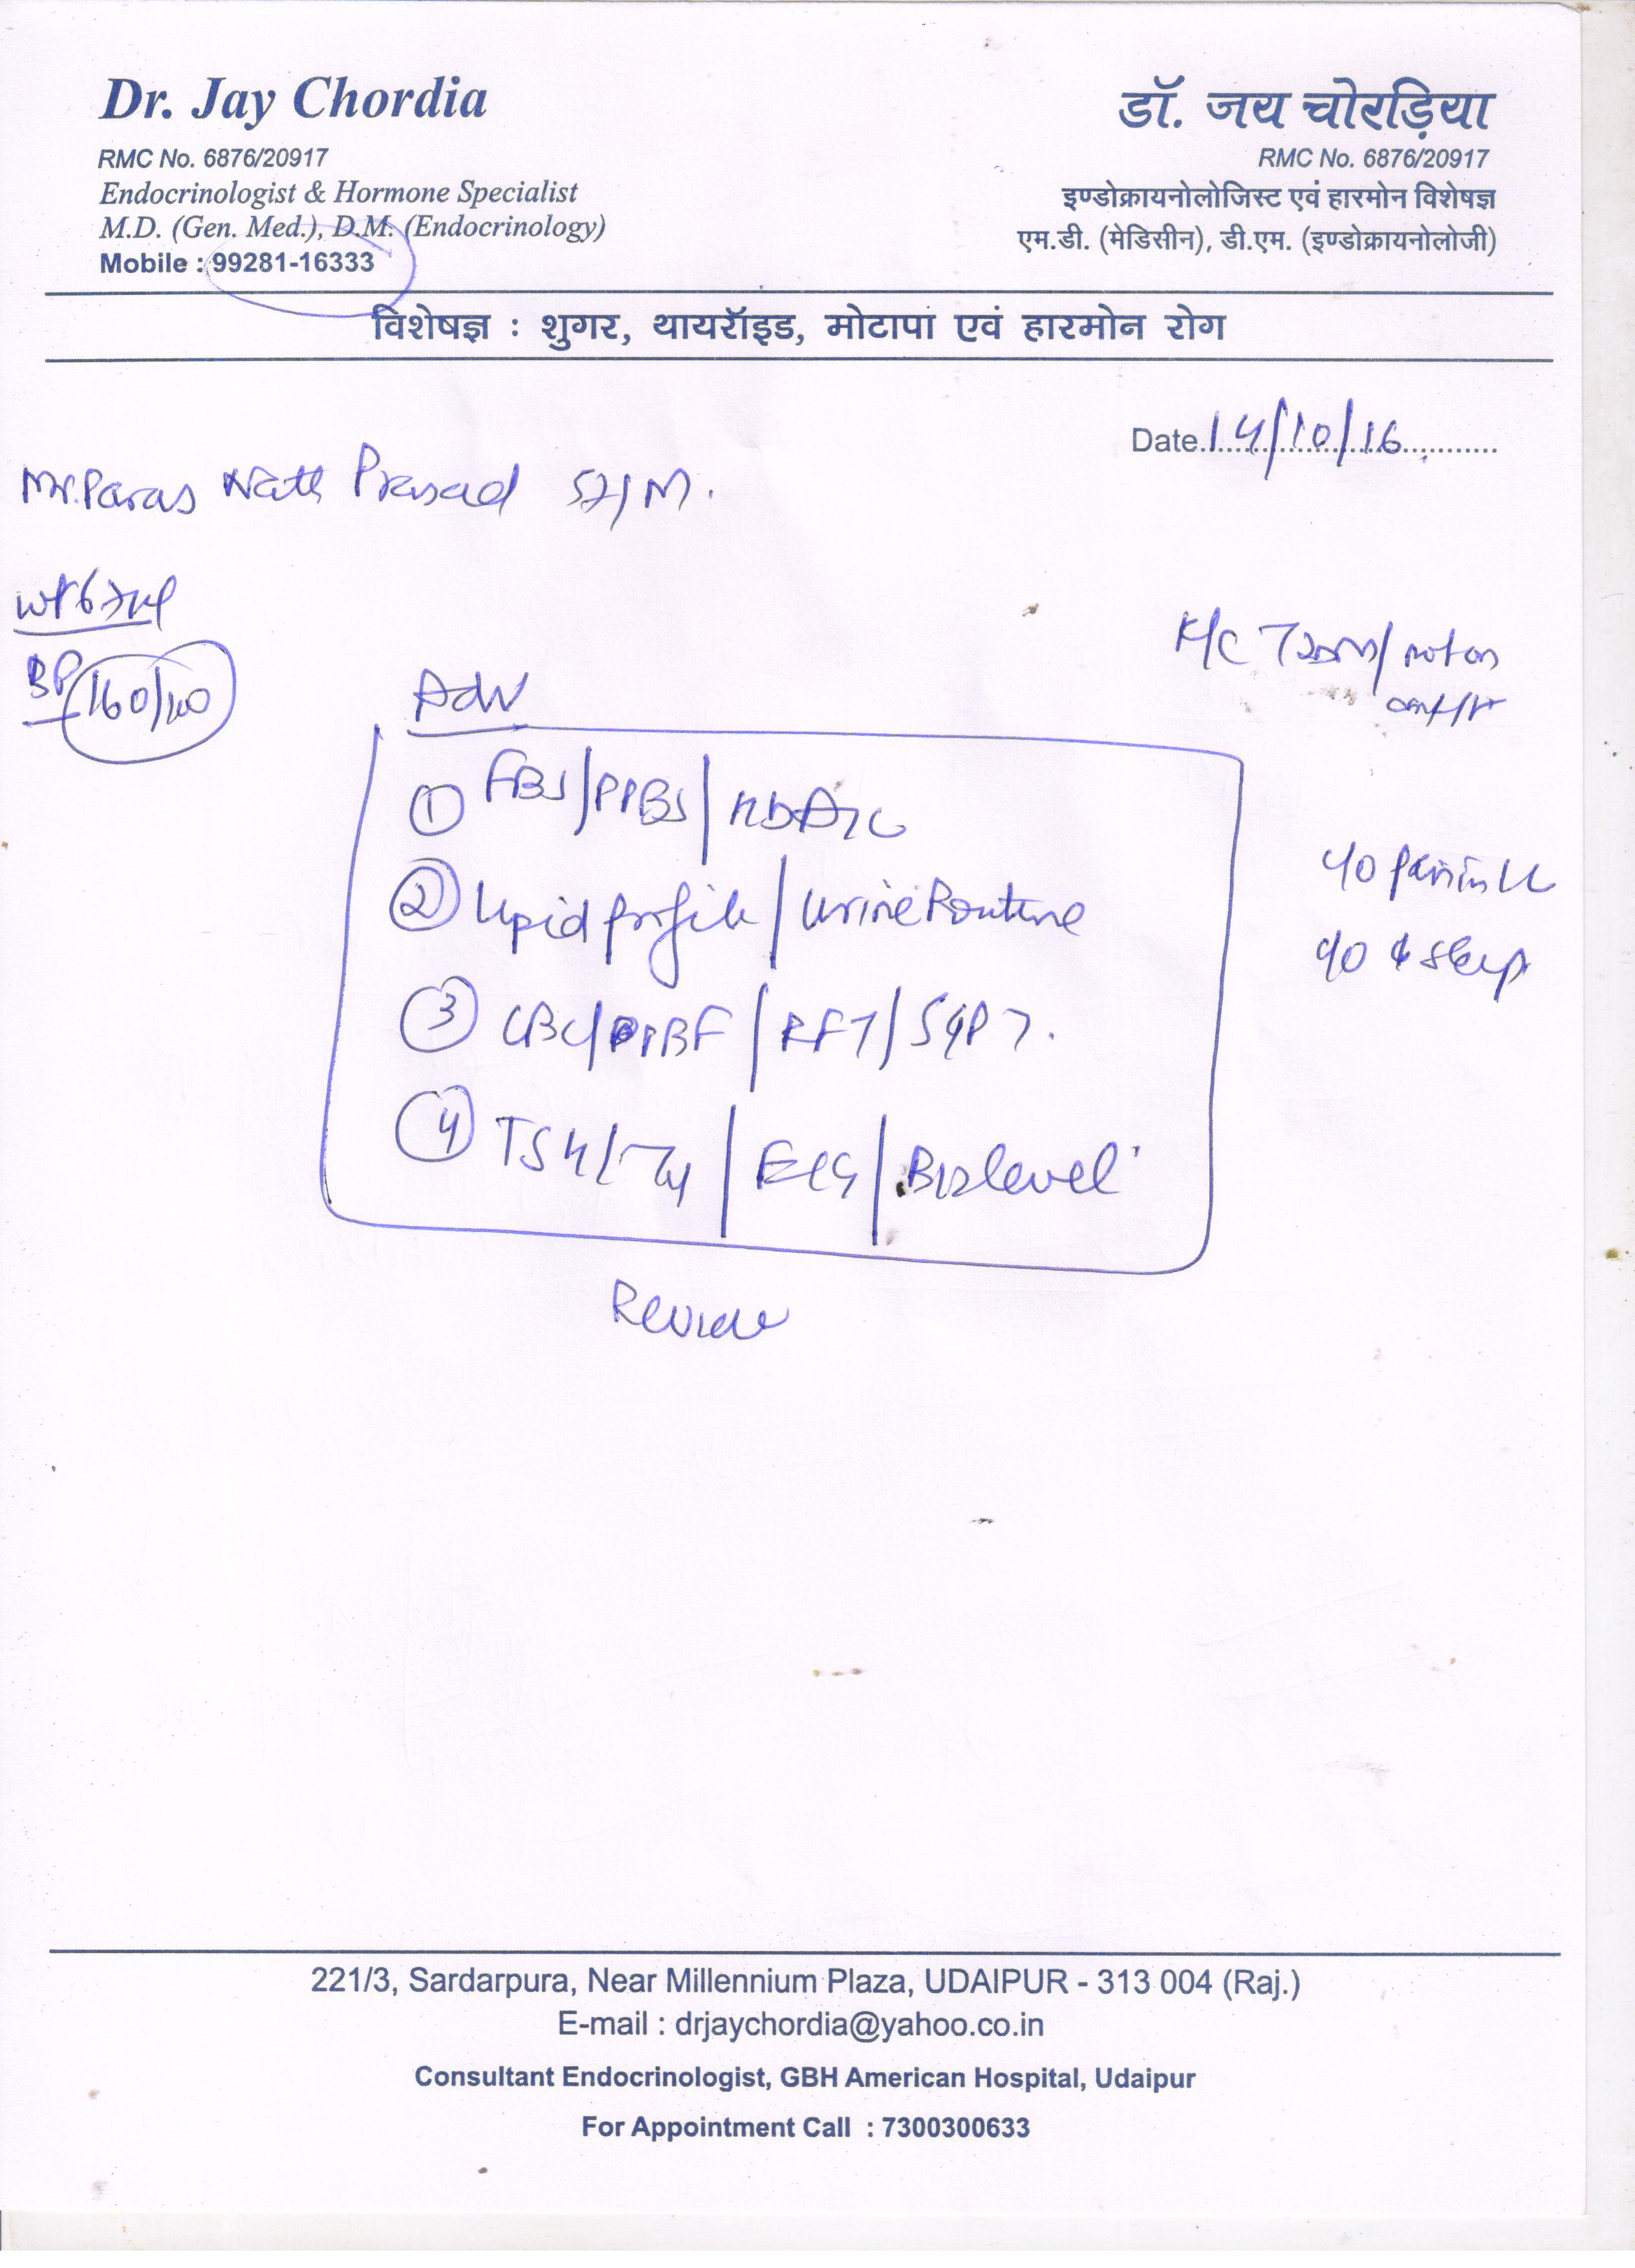 Dr. Jay Chordia
RMC No. 6876/20917
Endocrinologist & Hormone Specialist
M.D. (Gen. Med.), D.M. (Endocrinology)
Mobile : 99281-16333
डॉ. जय चोरड़िया
RMC No. 6876/20917
इण्डोक्रायनोलोजिस्ट एवं हारमोन विशेषज्ञ
एम.डी. (मेडिसीन), डी.एम. (इण्डोक्रायनोलोजी)
विशेषज्ञ : शुगर, थायरॉइड, मोटापा एवं हारमोन रोग
Date 14/10/16
Mr. Paras Nath Prasad 57/M.
wt 67kg
BP 160/100
K/C T2DM/not on
Adv
① FBS/PPBS/HbA1c
② Lipid profile/Urine Routine
③ CBC/PBF/RFT/SGPT.
④ TSH/T4/ECG/B12 level
c/o pain in LL
c/o ↓ sleep
Review
221/3, Sardarpura, Near Millennium Plaza, UDAIPUR - 313 004 (Raj.)
E-mail : drjaychordia@yahoo.co.in
Consultant Endocrinologist, GBH American Hospital, Udaipur
For Appointment Call : 7300300633